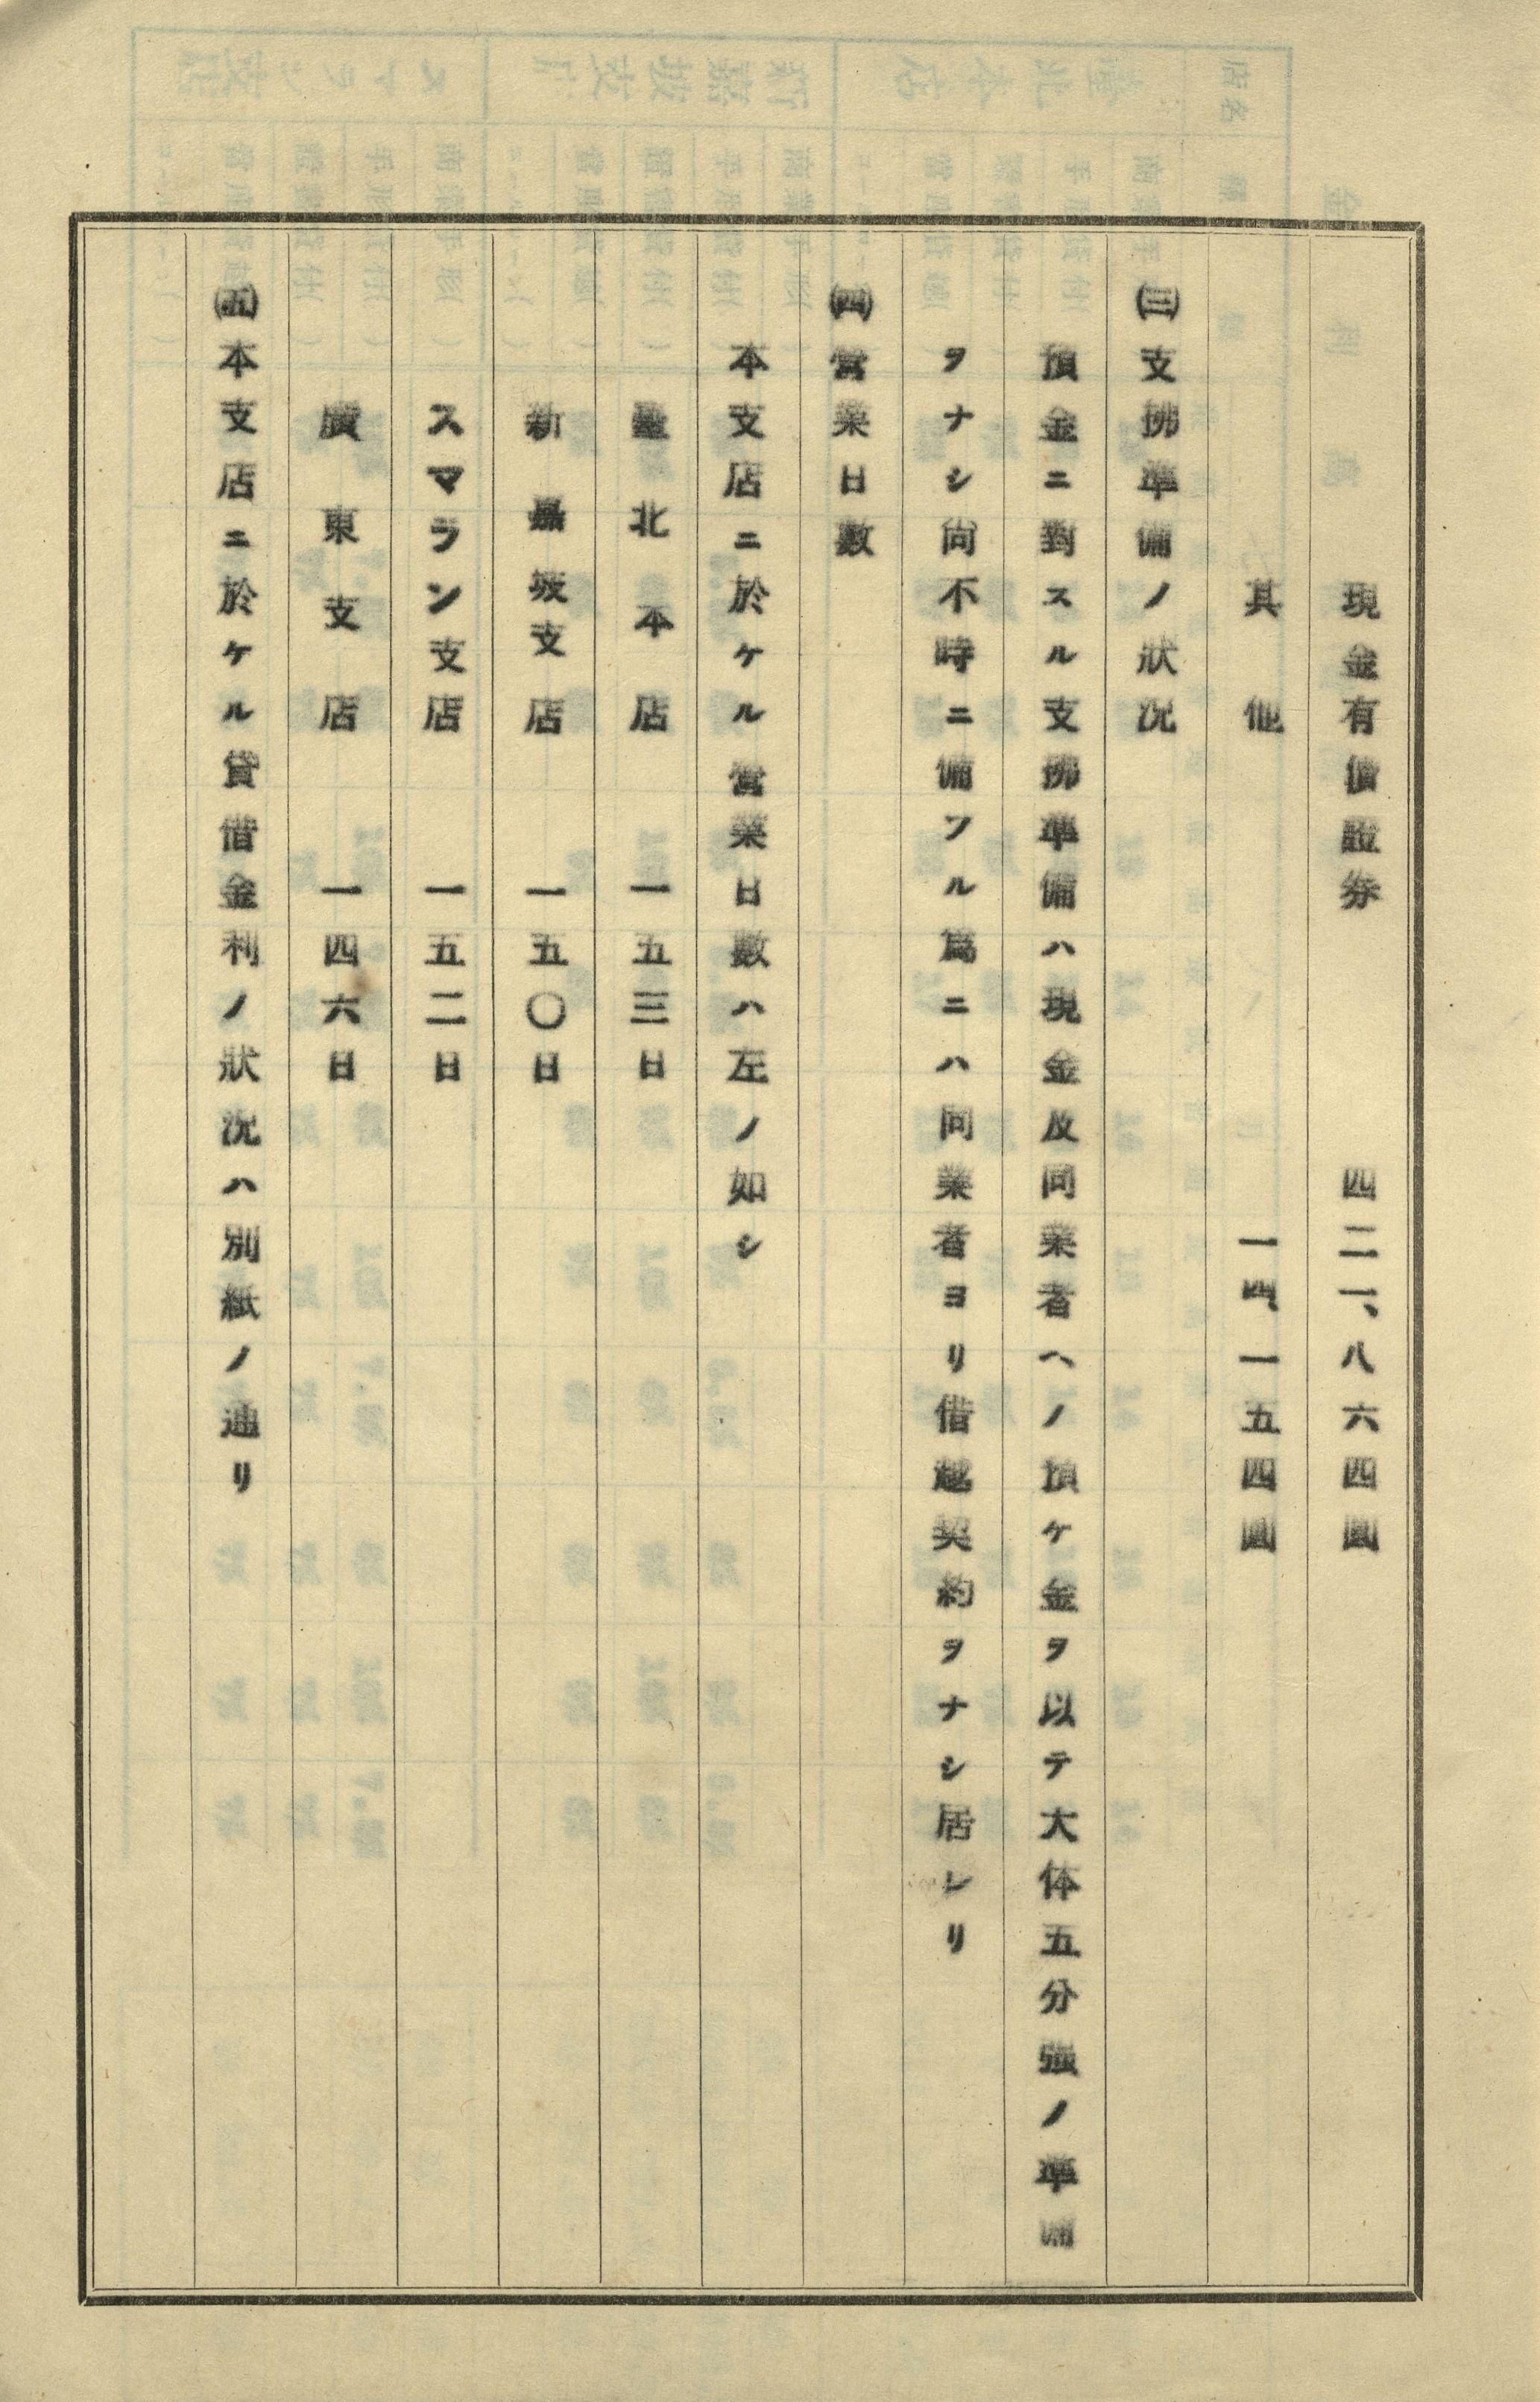 現金有價證券 四二一、八六四圓
其他 一四、一五四圓
㈢支拂準備ノ狀況
預金ニ對スル支拂準備ハ現金及同業者ヘノ預ケ金ヲ以テ大体五分強ノ準備
ヲナシ尙不時ニ備フル爲ニハ同業者ヨリ借越契約ヲナシ居レリ
㈣營業日數
本支店ニ於ケル營業日數ハ左ノ如シ
臺北本店 一五三日
新嘉坡支店 一五〇日
スマラン支店 一五二日
廣東支店 一四六日
㈤本支店ニ於ケル貸借金利ノ狀況ハ別紙ノ通リ